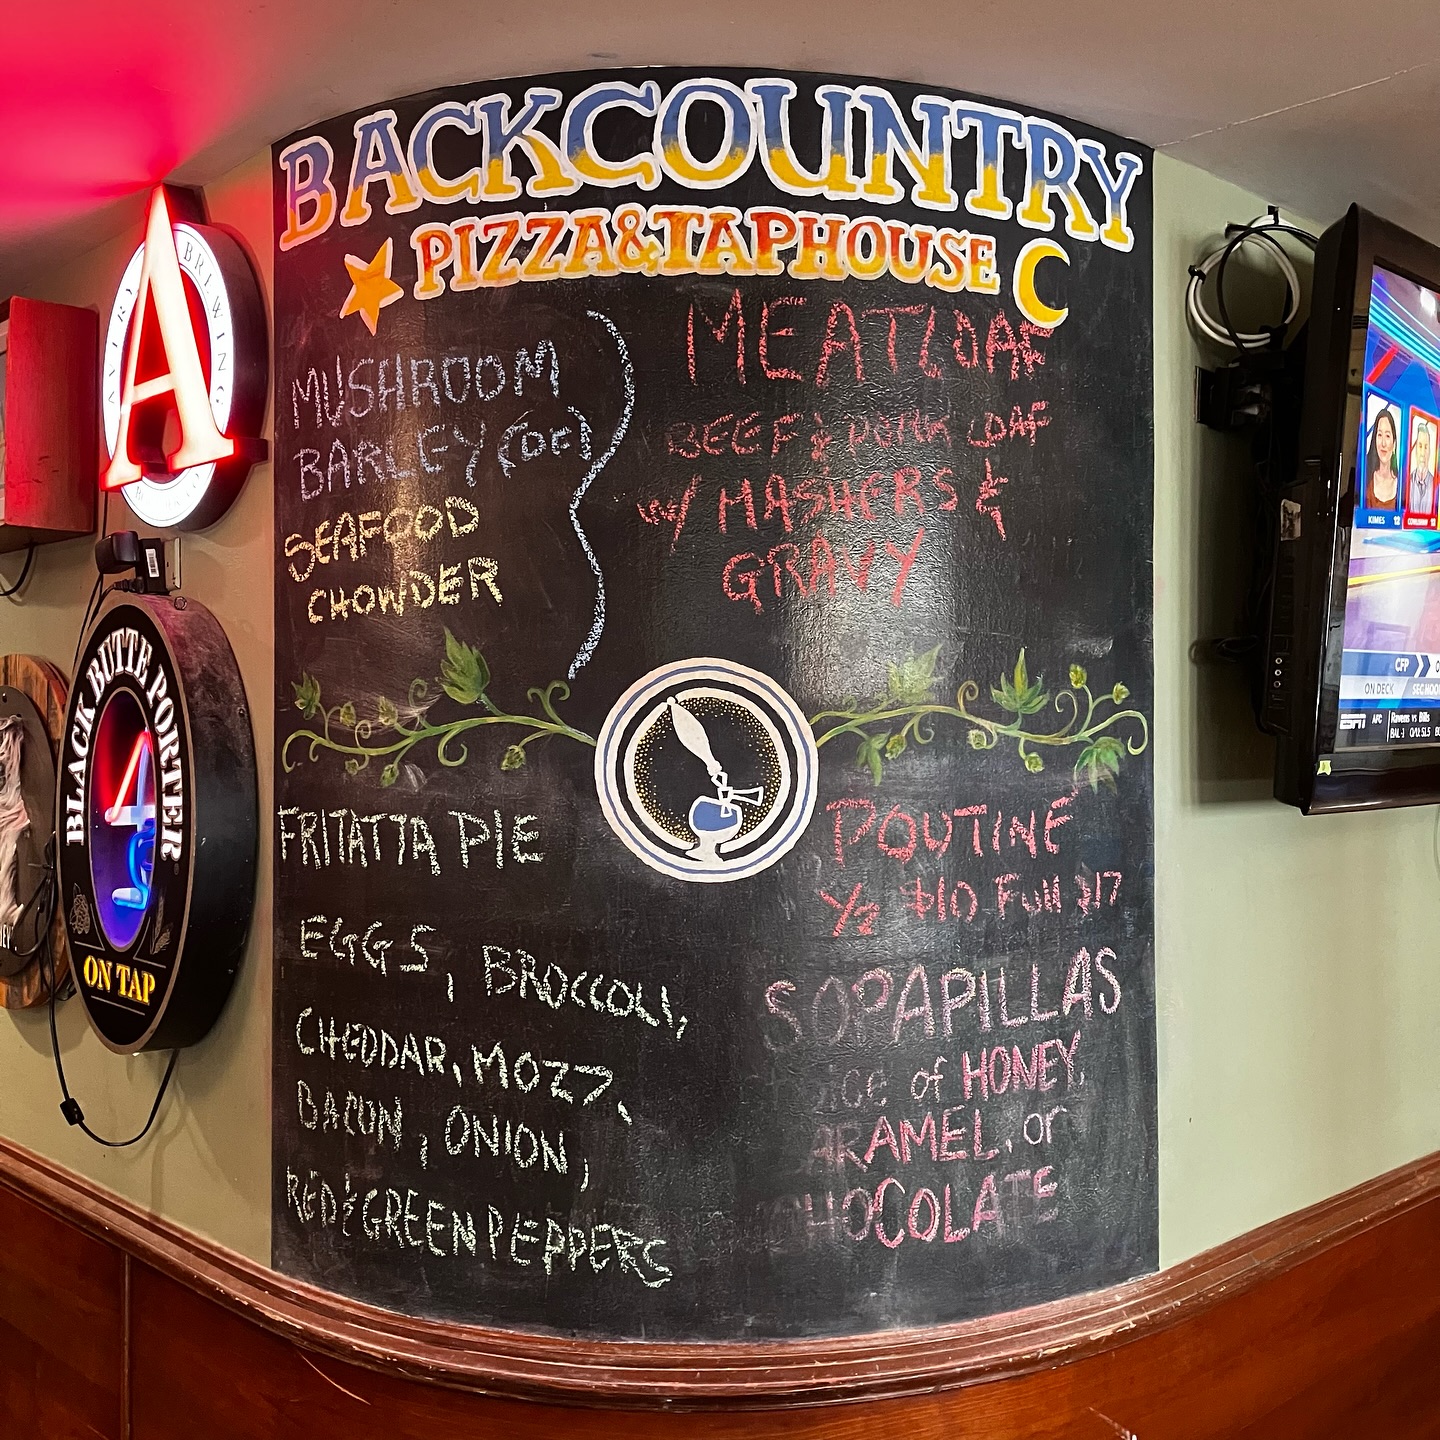 BACKCOUNTRY
PIZZA&TAPHOUSE
MUSHROOM
BARLEY (DF)
SEAFOOD
CHOWDER
MEATLOAF
BEEF & PORK LOAF
W/ MASHERS &
GRAVY
FRITATTA PIE
EGGS, BROCCOLI,
CHEDDAR, MOZZ,
BACON, ONION,
RED & GREEN PEPPERS
POUTINE
1/2 $10 Full $17
SOPAPILLAS
of HONEY,
ARAMEL, or
CHOCOLATE
AVERY BREWING
A
BLACK BUTTE PORTER
ON TAP
KIMES 12
CFP
ON DECK
ESPN AFC Ravens vs Bills